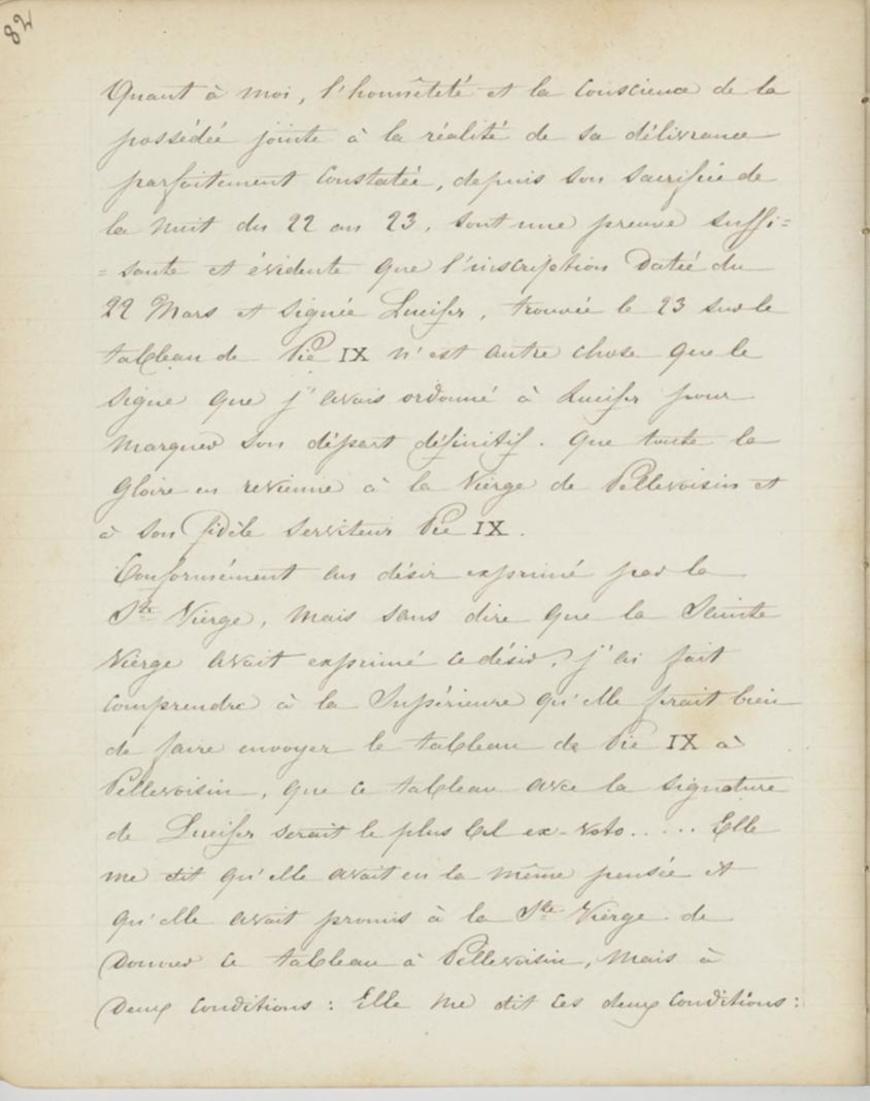 82
Quant à moi, l'honnêteté et la conscience de la
possédée jointe à la réalité de sa délivrance
parfaitement constatée, depuis son sacrifice de
la nuit du 22 au 23, sont une preuve suffi=
=sante et évidente que l'inscription datée du
22 Mars et signée Lucifer, trouvée le 23 sur le
tableau de Pie IX n'est autre chose que le
signe que j'avais ordonné à Lucifer pour
marquer son départ définitif. Que toute la
gloire en revienne à la Vierge de Pellevoisin et
à son fidèle serviteur Pie IX.
Conformément au désir exprimé par la
Ste Vierge, mais sans dire que la Sainte
Vierge avait exprimé ce désir, j'ai fait
comprendre à la Supérieure qu'elle ferait bien
de faire envoyer le tableau de Pie IX à
Pellevoisin, que ce tableau avec la signature
de Lucifer serait le plus bel ex-voto..... Elle
me dit qu'elle avait eu la même pensée et
qu'elle avait promis à la Ste Vierge de
donner ce tableau à Pellevoisin, mais à
deux conditions : Elle me dit ces deux conditions :